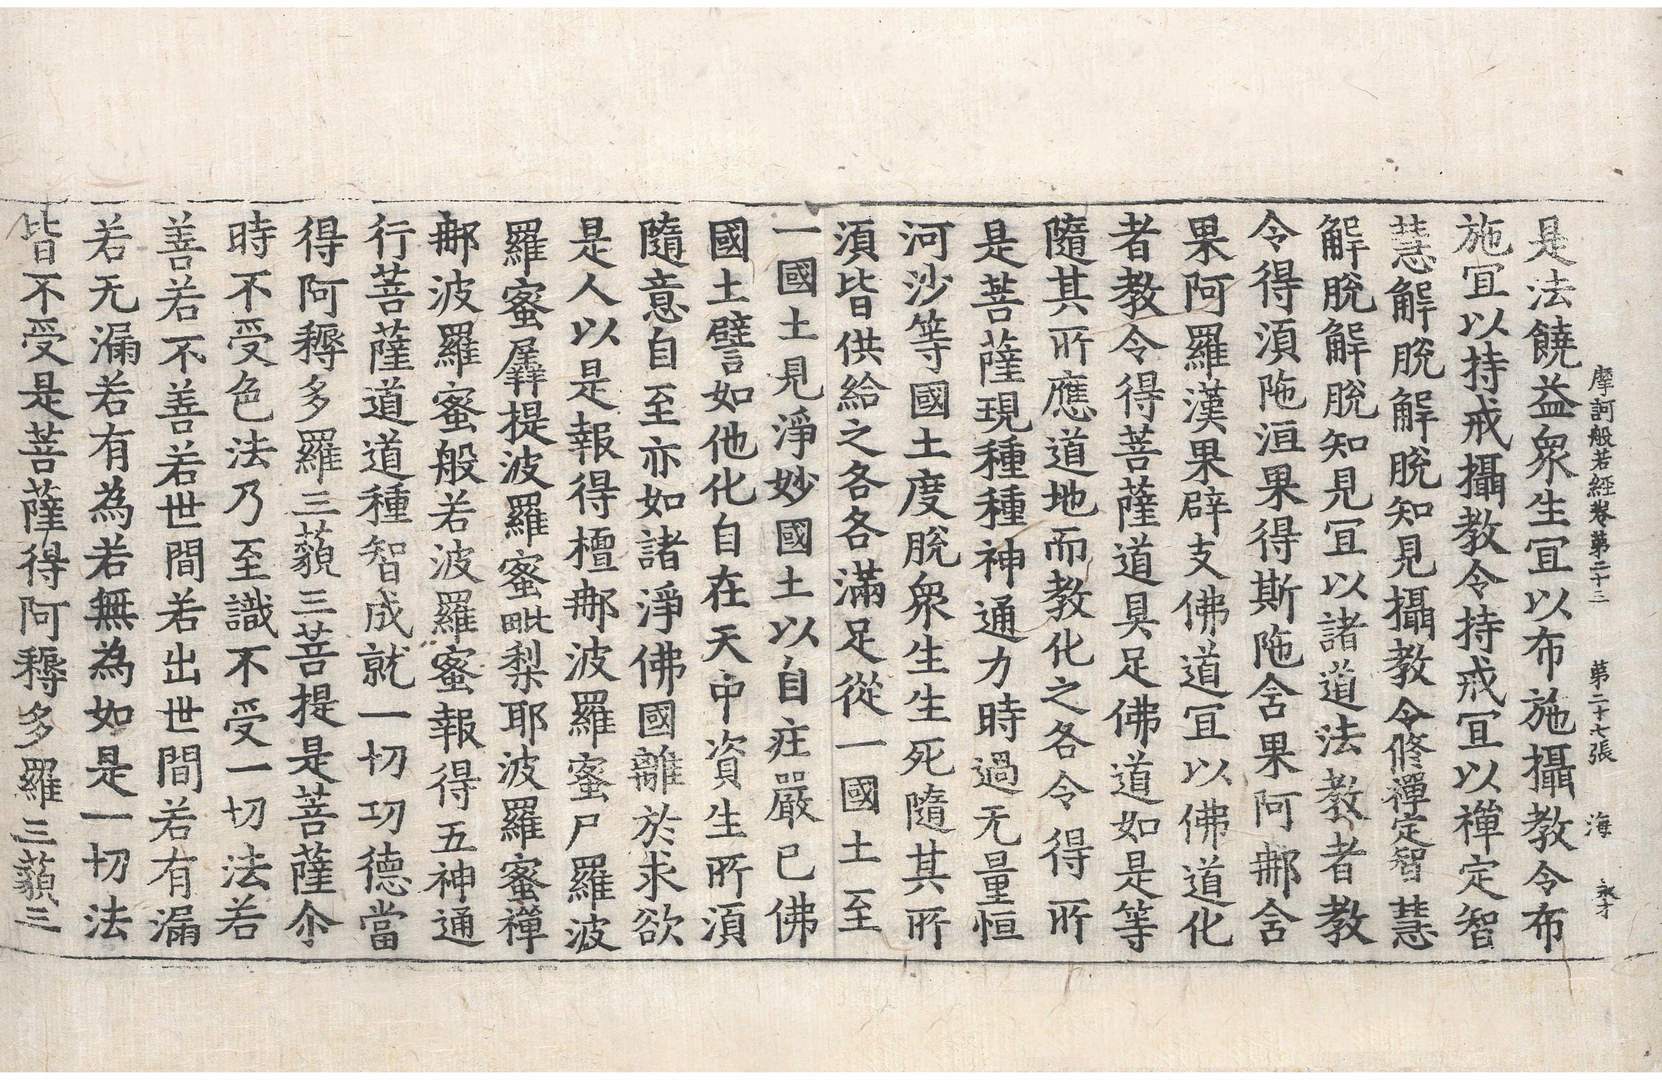 摩訶般若經卷第二十三 第二十七張 海 永才
是法饒益衆生冝以布施攝教令布
施冝以持戒攝教令持戒冝以禪定智
慧解脫解脫知見攝教令修禪定智慧
解脫解脫知見冝以諸道法教者教
令得湏陁洹果得斯陁含果阿那含
果阿羅漢果辟支佛道冝以佛道化
者教令得菩薩道具足佛道如是等
隨其所應道地而教化之各令得所
是菩薩現種種神通力時過无量恒
河沙等國土度脫衆生生死隨其所
湏皆供給之各各滿足從一國土至
一國土見淨妙國土以自莊嚴已佛
國土譬如他化自在天中資生所湏
隨意自至亦如諸淨佛國離於求欲
是人以是報得檀那波羅蜜尸羅波
羅蜜羼提波羅蜜毗梨耶波羅蜜禪
那波羅蜜般若波羅蜜報得五神通
行菩薩道道種智成就一切功德當
得阿耨多羅三藐三菩提是菩薩尒
時不受色法乃至識不受一切法若
善若不善若世間若出世間若有漏
若无漏若有為若無為如是一切法
皆不受是菩薩得阿耨多羅三藐三